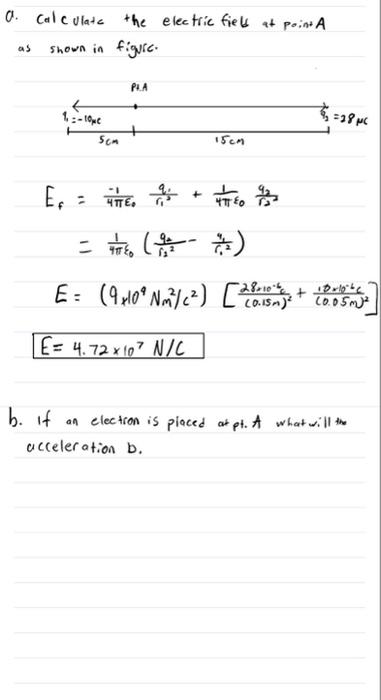 a. Calculate the electric field at point A
as shown in figure.
Pt.A
q₁=-10μc
q₂=28μC
5cm
15cm
E_f = -1/4πε₀ q₁/r₁² + 1/4πε₀ q₂/r₂²
= 1/4πε₀ (q₂/r₂² - q₁/r₁²)
E = (9x10⁹ Nm²/c²) [28x10⁻⁶c/(0.15m)² + 10x10⁻⁶c/(0.05m)²]
E= 4.72x10⁷ N/C
b. If an electron is placed at pt. A what will the
acceleration b.